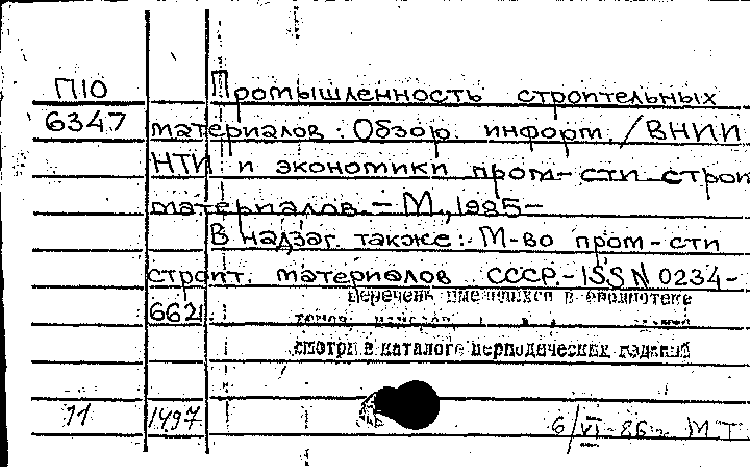 П10 Промышленность строительных
6347 материалов: Обзор. информ. / ВНИИ
НТИ и экономики пром-сти строит
материалов. – М., 1985–
В надзаг. также: М-во пром-сти
строит. материалов СССР. – ISSN 0234-
6621.
Перечень имеющихся в библиотеке
смотри в каталоге периодических изданий
11 1497 6/VI-86г. М Т